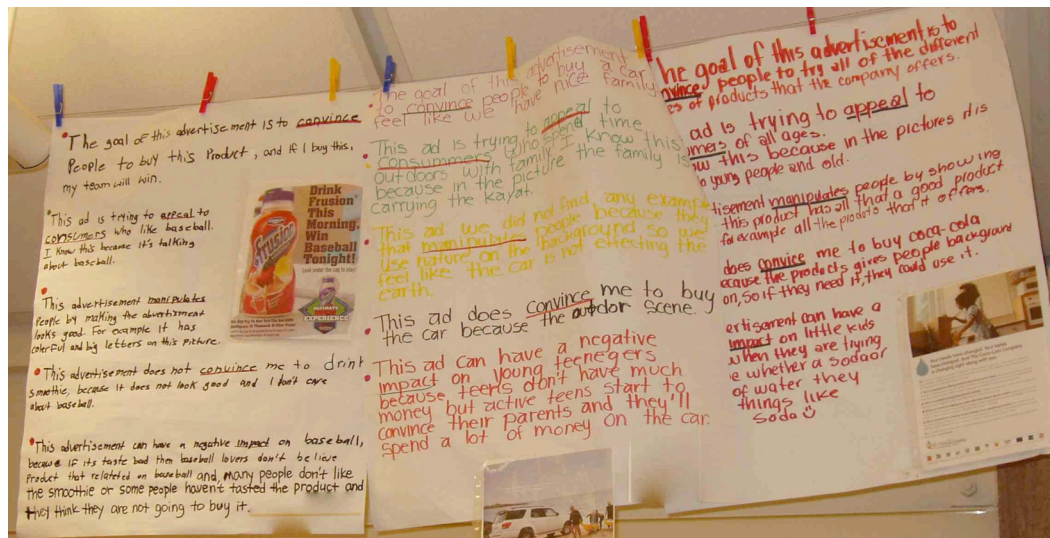 The goal of this advertisement is to convince
People to buy this Product, and if I buy this,
my team will win.
This ad is trying to appeal to
consumers who like baseball.
I know this because it's talking
about baseball.
This advertisement manipulates
People by making the advertisment
looks good. For example it has
colorful and big letters on this Picture.
This advertisement does not convince me to drink
smoothie, because it does not look good and I don't care
about baseball.
This advertisement can have a negative impact on baseball,
because if its taste bad then baseball lovers don't believe
Product that relateted on baseball and, many people don't like
the smoothie or some people haven't tasted the product and
they think they are not going to buy it.
Drink
Frusion
This
Morning,
Win
Baseball
Tonight!
Look under the cap to play!
frusion
ULTIMATE
EXPERIENCE
The goal of this advertisement
to convince people to buy a car
feel like we have nice family.
This ad is trying to appeal to
consummers who spend time
outdoors with family I know this
because in the picture the family is
carrying the kayat.
This ad we did not find any example
that manipulates people because they
use nature on the background so we
feel like the car is not effecting the
earth.
This ad does convince me to buy
the car because the outdor scene.
This ad can have a negative
impact on young teenegers
because teens don't have much
money but active teens start to
convince their parents and they'll
spend a lot of money on the car.
he goal of this advertisement is to
nvince people to try all of the different
es of products that the company offers.
ad is trying to appeal to
mers of all ages.
ow this because in the pictures it is
young people and old.
tisement manipulates people by showing
this product has all that a good product
for example all the products that it offers.
does convice me to buy coca-cola
ecause the products gives people background
on, so if they need it, they could use it.
ertisement can have a
impact on little kids
when they are trying
e whether a soda or
of water they
things like
soda